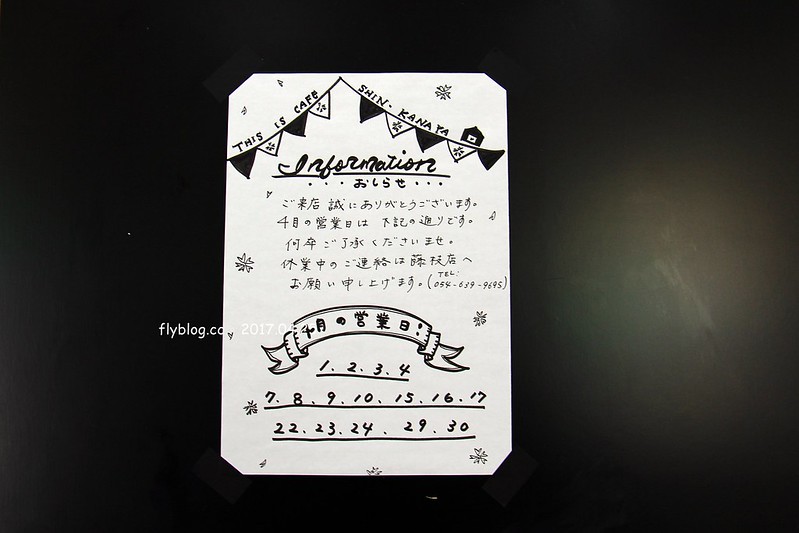 THIS IS CAFE SHIN・KANAYA
Information
・・・おしらせ・・・
ご来店 誠にありがとうございます。
4月の営業日は 下記の通りです。
何卒ご了承くださいませ。
休業中のご連絡は藤枝店へ
お願い申し上げます。(TEL: 054-639-9695)
4月の営業日!
1.2.3.4
7.8.9.10、15.16.17
22.23.24、29.30
flyblog.cc 2017.04